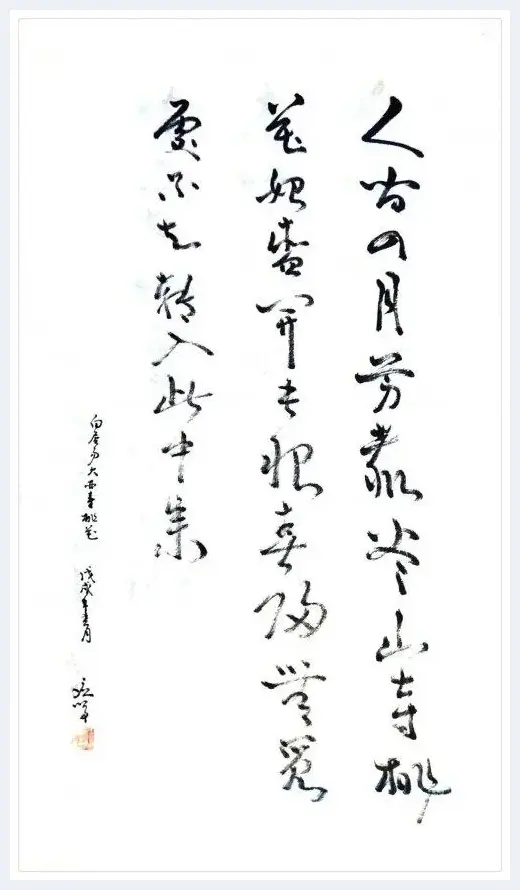 人間四月芳菲盡山寺桃
花始盛開長恨春歸無覓
處不知轉入此中來
白居易大林寺桃花 戊戌年月